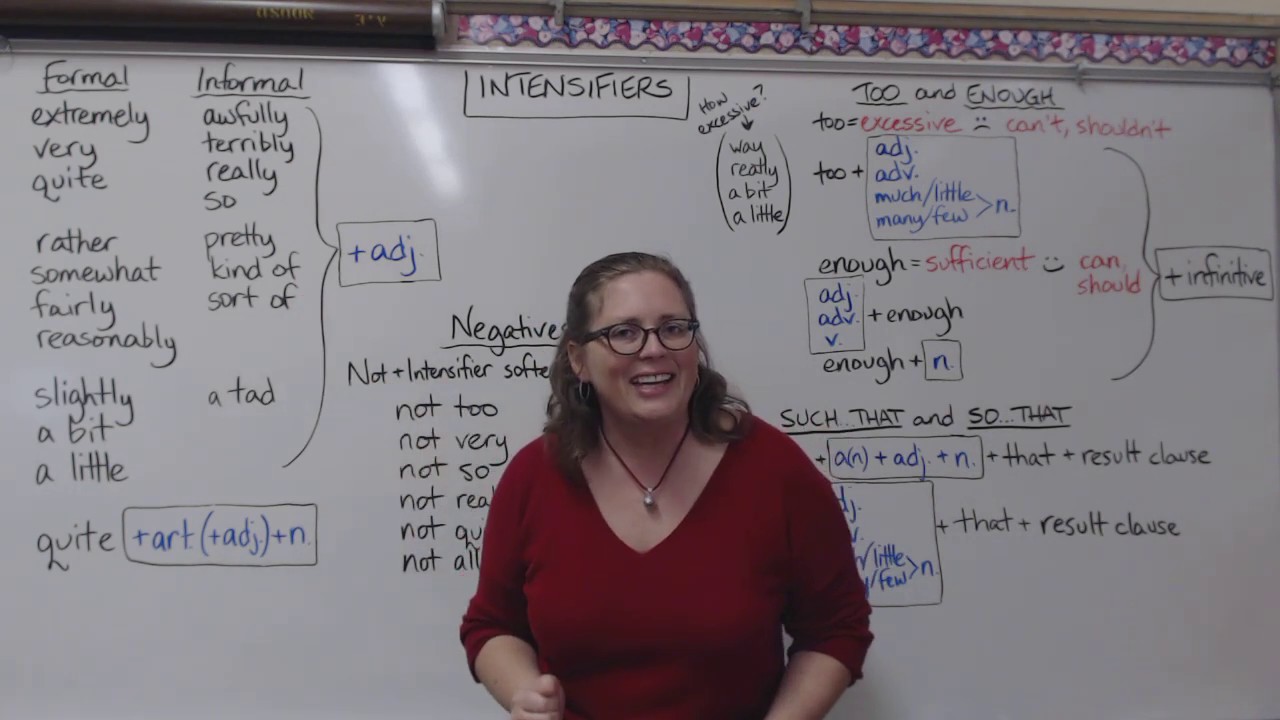 INTENSIFIERS
Formal
extremely
very
quite
rather
somewhat
fairly
reasonably
slightly
a bit
a little
quite +art. (+adj.)+n.
Informal
awfully
terribly
really
so
pretty
kind of
sort of
a tad
+adj.
Negative
Not+Intensifier
not too
not very
not so
not
not
not
How
excessive?
way
really
a bit
a little
TOO and ENOUGH
too=excessive can't, shouldn't
too +
adj.
adv.
much/little
many/few >n.
enough=sufficient can,
should
adj.
adv. +enough
v.
enough + n.
+ infinitive
SUCH...THAT and SO...THAT
+ a(n) + adj. + n. + that + result clause
+ that + result clause
/little
/few >n.